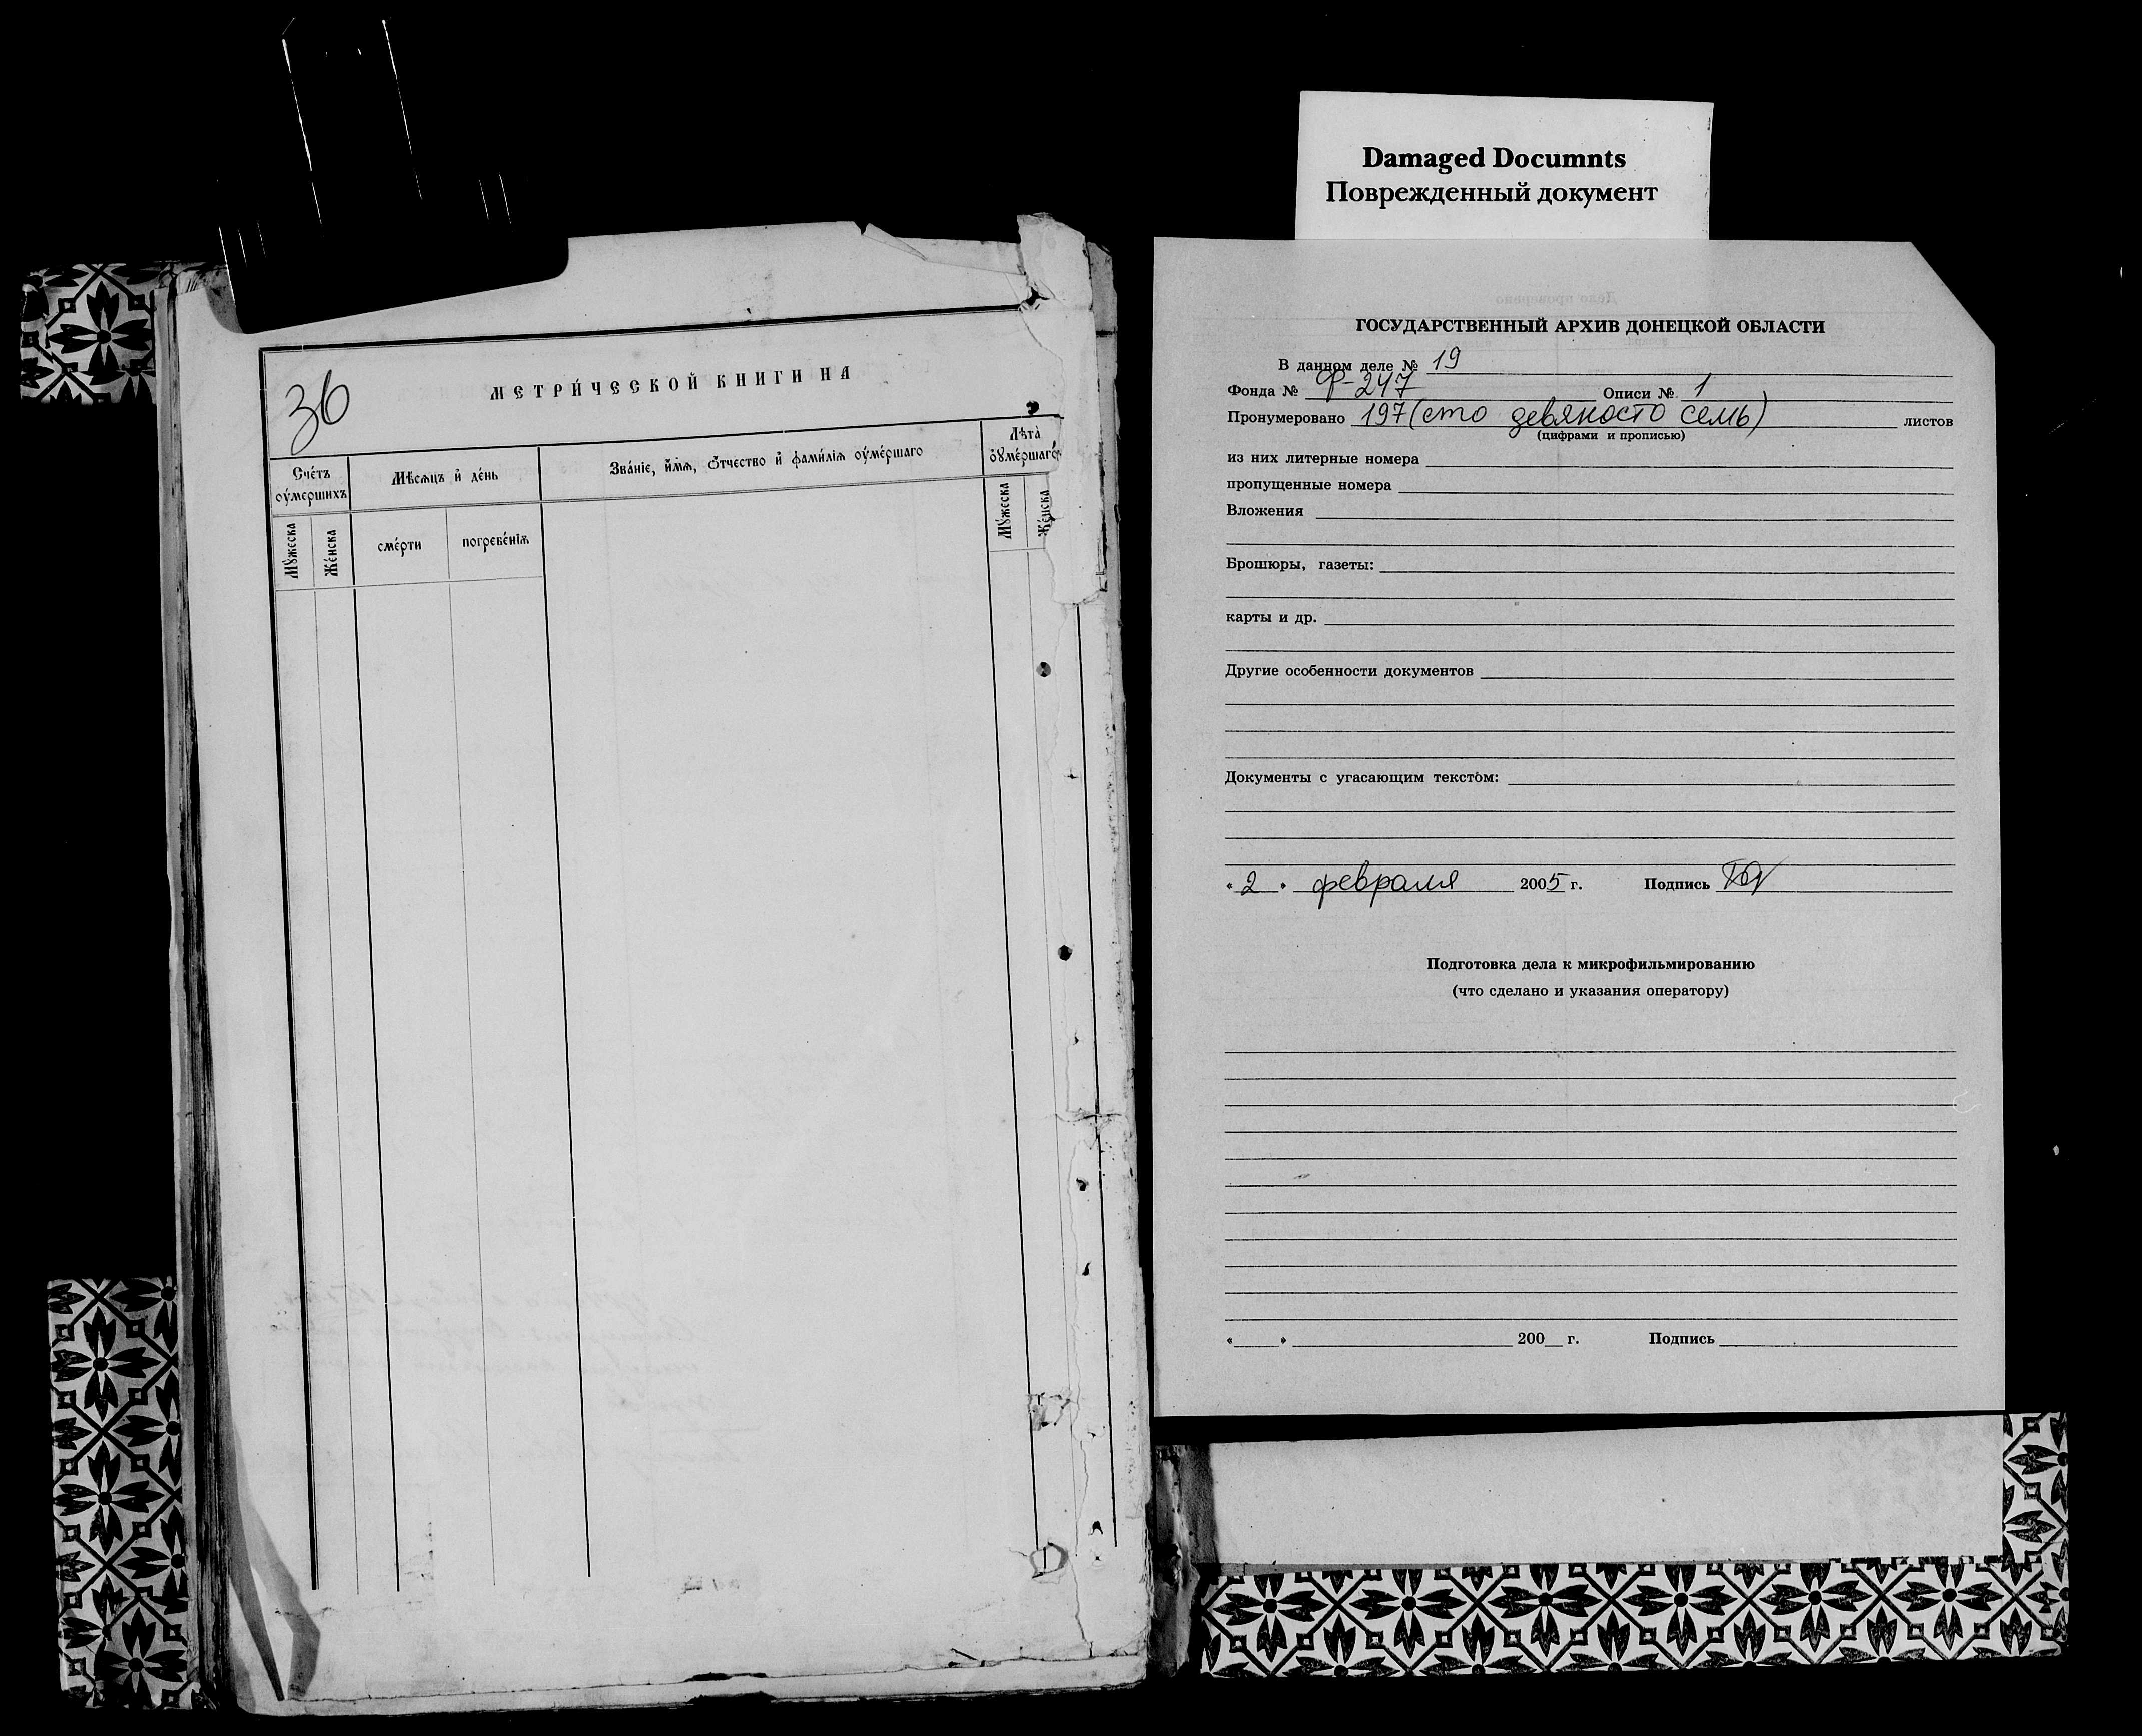 36
МЕТРИ́ЧЕСКОЙ КНИГИ НА
Сче́тъ оу҆́мершихъ
Мѣ́сяцъ и҆ де́нь
Зва́нїе, и҆́мѧ, ѻ҆́тчество и҆ фами́лїѧ оу҆ме́ршагѡ
Лѣта̀ оу҆ме́ршагѡ
Мꙋ́жеска
Же́нска
сме́рти
погребе́нїѧ
Мꙋ́жеска
Же́нска
Damaged Documnts
Поврежденный документ
ГОСУДАРСТВЕННЫЙ АРХИВ ДОНЕЦКОЙ ОБЛАСТИ
В данном деле № 19
Фонда № Ф-247 Описи № 1
Пронумеровано 197 (сто девяносто семь) листов
(цифрами и прописью)
из них литерные номера
пропущенные номера
Вложения
Брошюры, газеты:
карты и др.
Другие особенности документов
Документы с угасающим текстом:
« 2 » февраля 2005 г. Подпись
Подготовка дела к микрофильмированию
(что сделано и указания оператору)
« » 200 г. Подпись